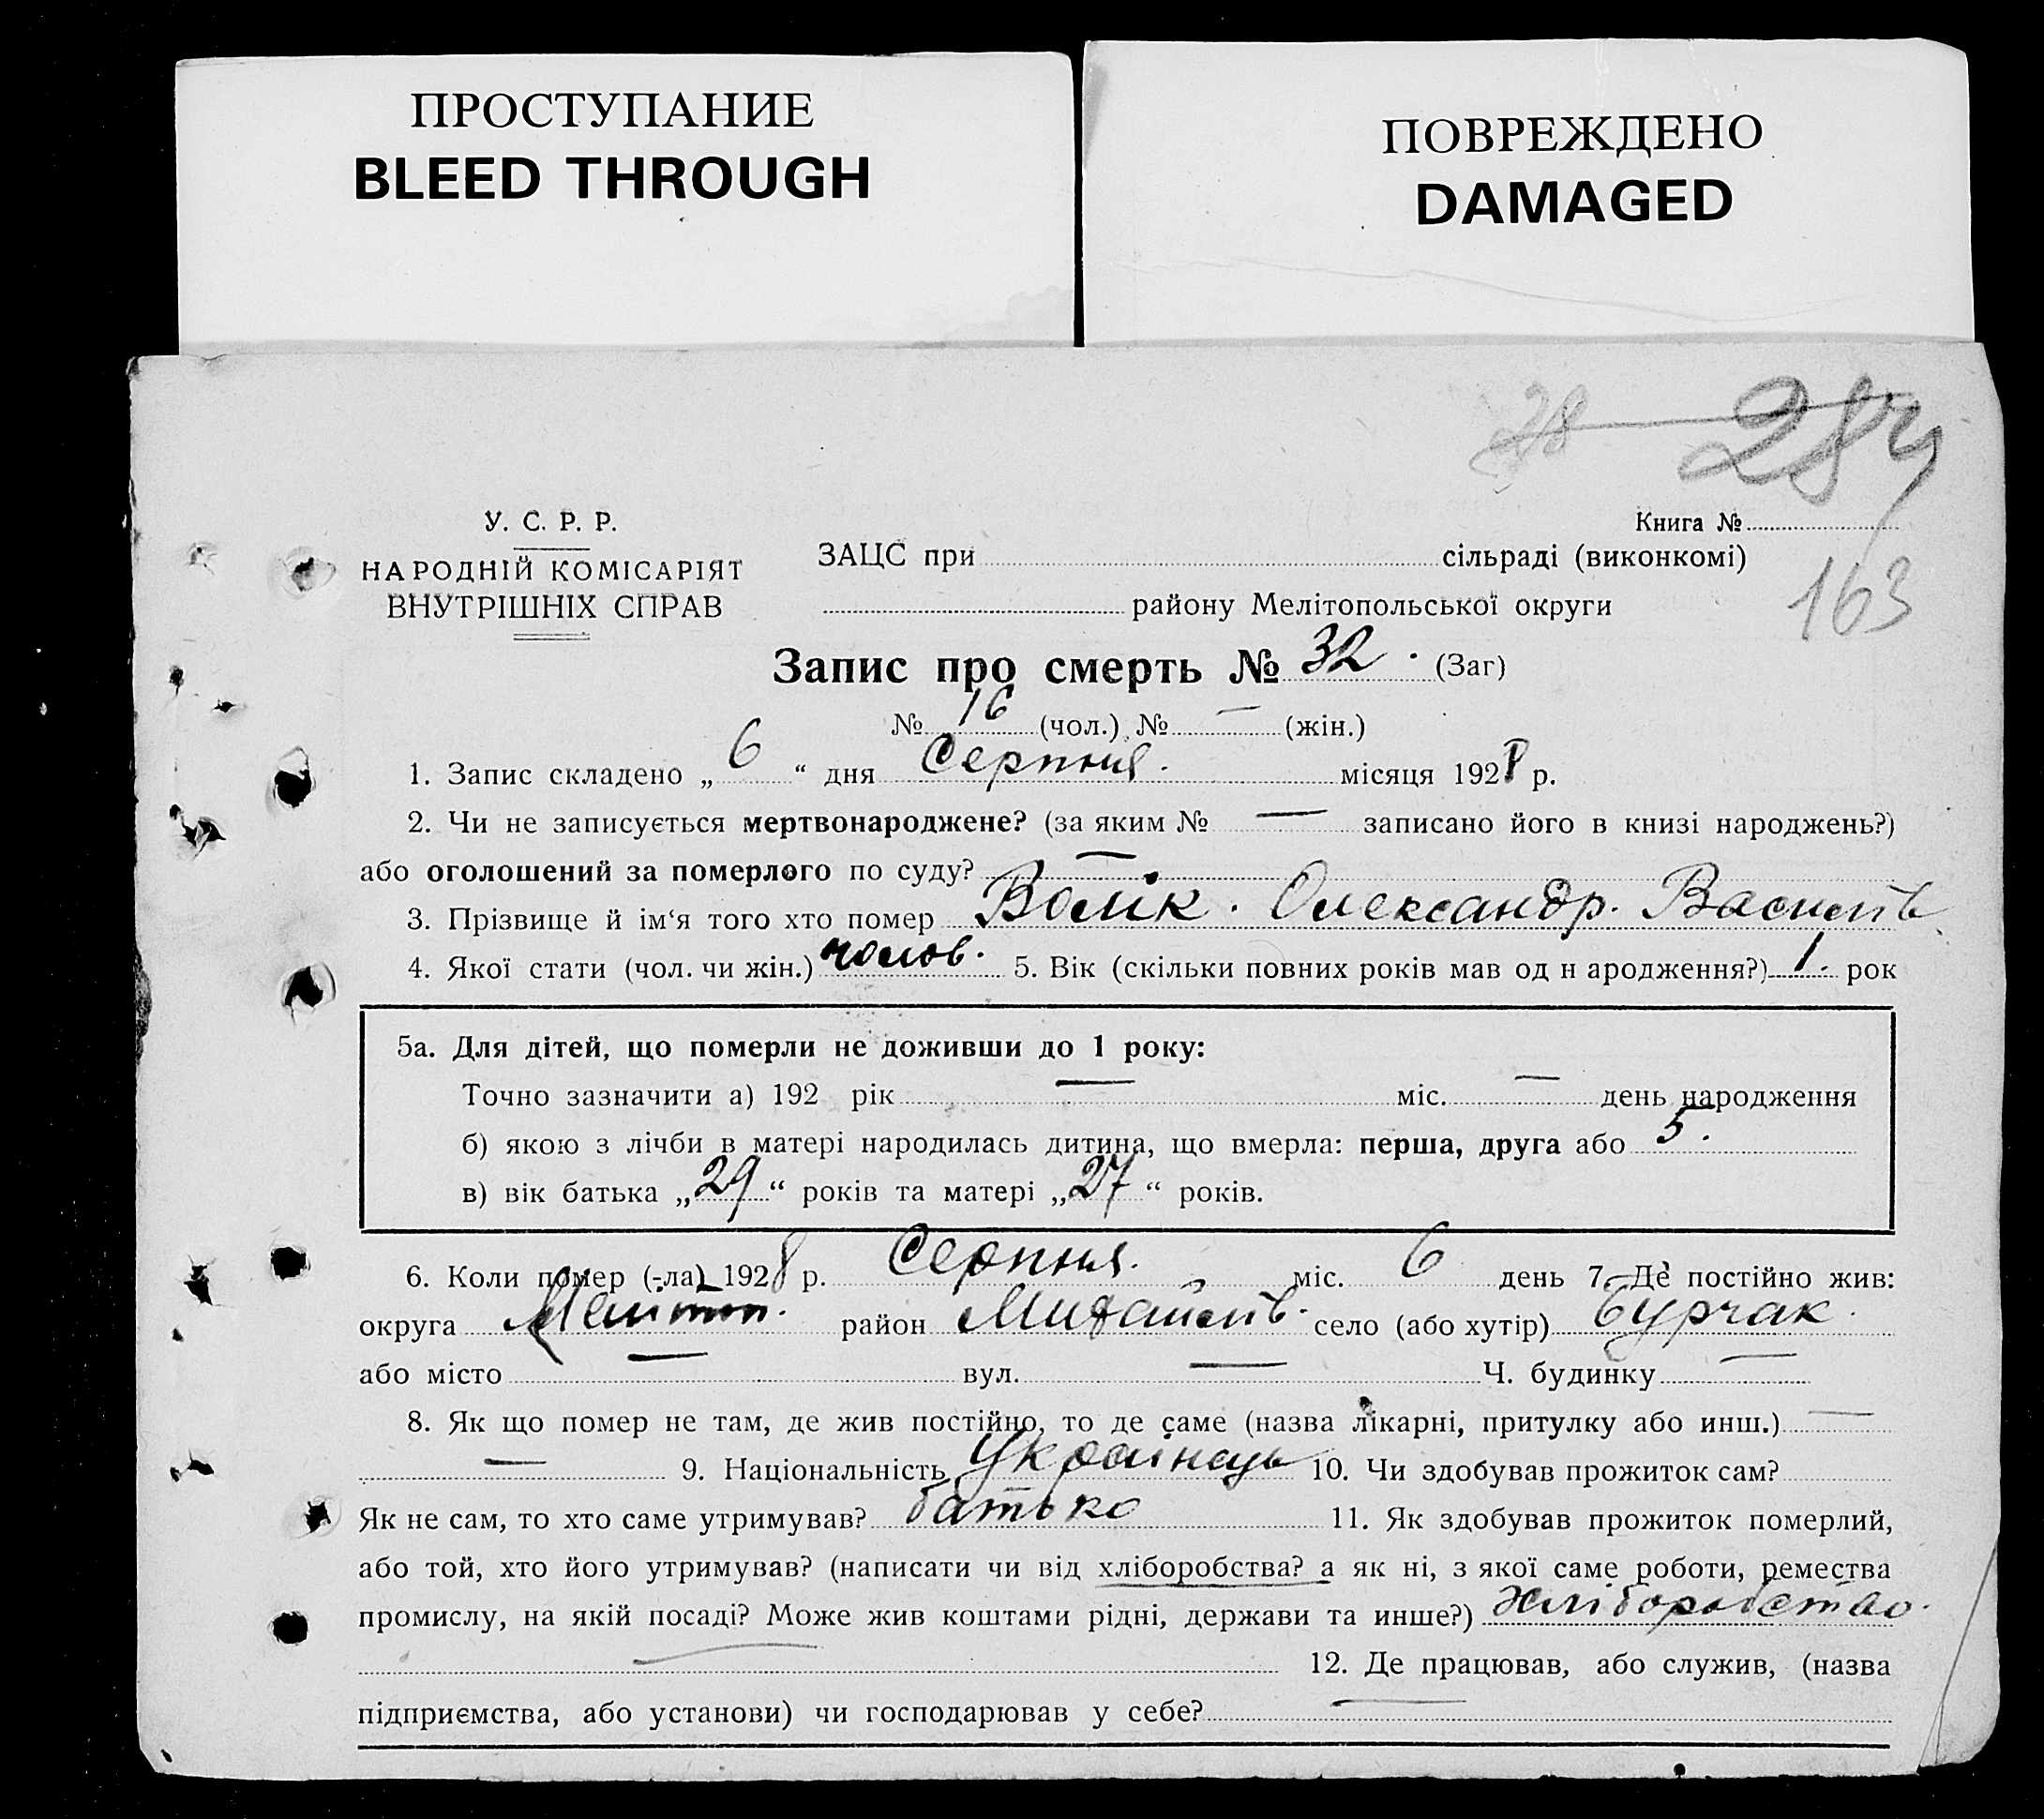 ПРОСТУПАНИЕ
BLEED THROUGH
ПОВРЕЖДЕНО
DAMAGED
28 284
У. С. Р. Р.
НАРОДНІЙ КОМІСАРІЯТ
ВНУТРІШНІХ СПРАВ
Книга №
ЗАЦС при сільраді (виконкомі)
району Мелітопольської округи
163
Запис про смерть № 32. (Заг)
№ 16 (чол.) № — (жін.)
1. Запис складено „6“ дня Серпня. місяця 1928 р.
2. Чи не записується мертвонароджене? (за яким № — записано його в книзі народжень?)
або оголошений за померлого по суду? —
3. Прізвище й ім‘я того хто помер Волік. Олександр. Василів
4. Якої стати (чол. чи жін.) чолов. 5. Вік (скільки повних років мав од н ародження?) 1. рок
5а. Для дітей, що померли не доживши до 1 року:
Точно зазначити а) 192 рік — міс. — день народження
б) якою з лічби в матері народилась дитина, що вмерла: перша, друга або 5.
в) вік батька „29“ років та матері „27“ років.
6. Коли помер (-ла) 1928 р. Серпня. міс. 6 день 7. Де постійно жив:
округа Меліт. район Михайлів. село (або хутір) Бурчак.
або місто — вул. — Ч. будинку —
8. Як що помер не там, де жив постійно, то де саме (назва лікарні, притулку або инш.) —
— 9. Національність Українець 10. Чи здобував прожиток сам?
Як не сам, то хто саме утримував? батько 11. Як здобував прожиток померлий,
або той, хто його утримував? (написати чи від хліборобства? а як ні, з якої саме роботи, ремества
промислу, на якій посаді? Може жив коштами рідні, держави та инше?) Хліборобство.
— 12. Де працював, або служив, (назва
підприємства, або установи) чи господарював у себе? —